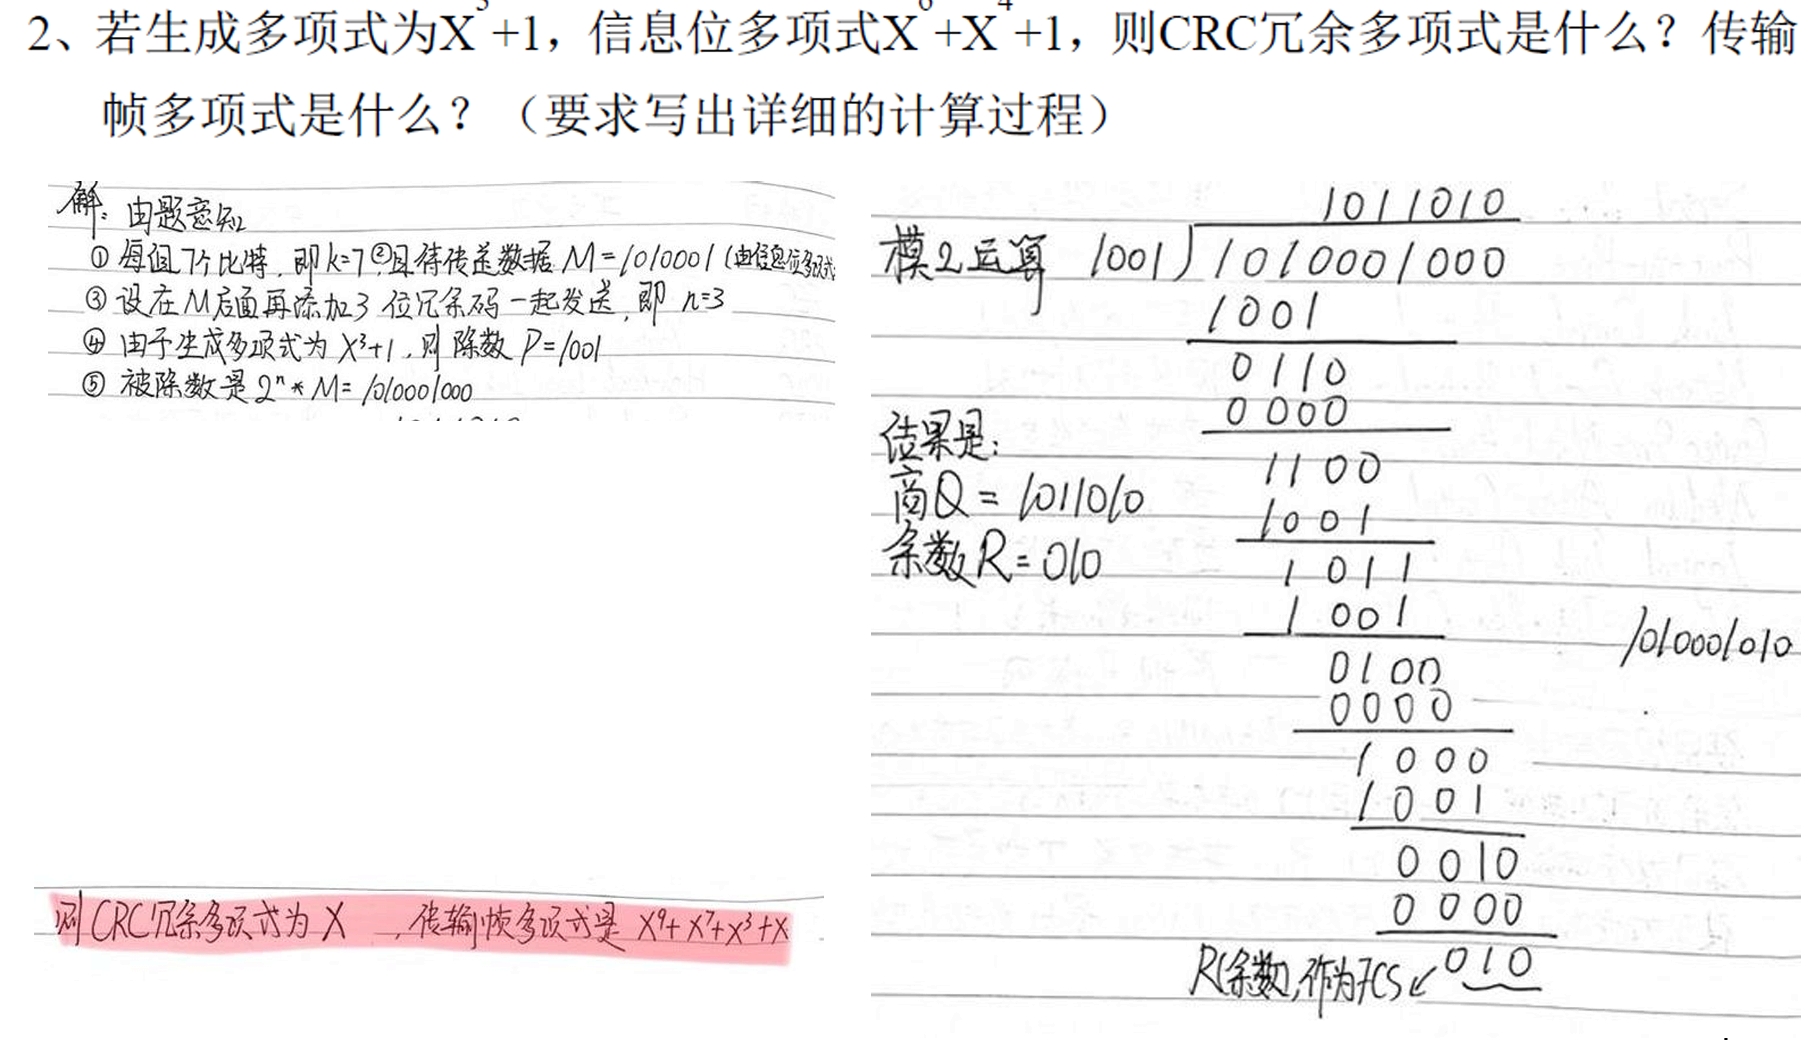 2、若生成多项式为X³+1，信息位多项式X⁶+X⁴+1，则CRC冗余多项式是什么？传输
帧多项式是什么？（要求写出详细的计算过程）
解：由题意知
① 每组7个比特，即k=7 ②且待传送数据 M=1010001 (由信息位多项式
③ 设在M后面再添加3位冗余码一起发送，即 n=3
④ 由于生成多项式为 X³+1，则除数 P=1001
⑤ 被除数是 2ⁿ*M= 1010001000
则CRC冗余多项式为 X ，传输帧多项式是 X⁹+X⁷+X³+X
1011010
模2运算 1001)1010001000
1001
0110
0000
1100
1001
1011
1001
0100
0000
1000
1001
0010
0000
010
R(余数),作为FCS↙
结果是：
商Q=1011010
余数R=010
1010001010